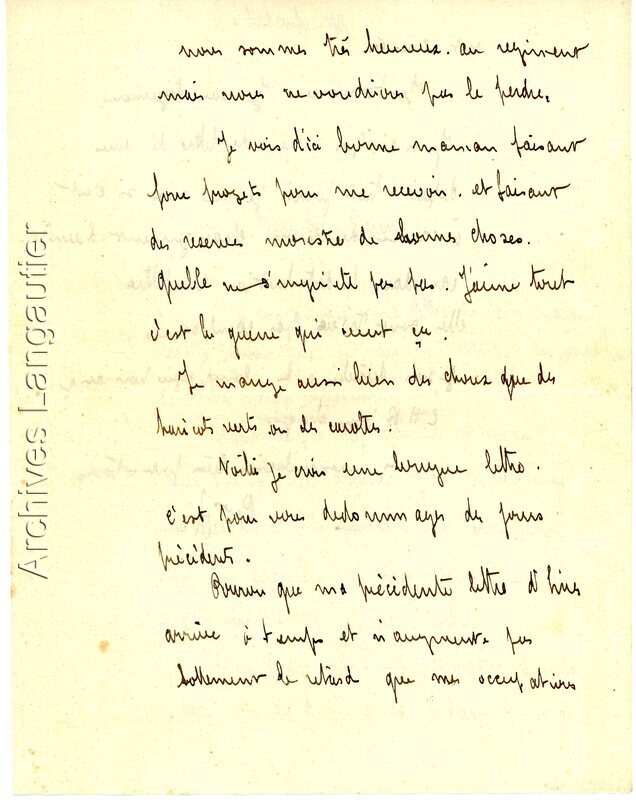 nous sommes très heureux. au regiment
mais nous ne voudrions pas le perdre.
Je vois d'ici bonne maman faisant
force projets pour me recevoir. et faisant
des reserves monstre de bonnes choses.
Quelle ne s'inquiete pas pas. J'aime tout
c'est la guerre qui veut ça.
Je mange aussi bien des choux que des
haricots verts ou des carottes.
Voila je crois une longue lettre.
c'est pour vous dedommager des jours
précédents.
Pourvu que ma précédente lettre d'hier
arrive à temps et n'augmente pas
sottement le retard que mes occupations
Archives Langautier